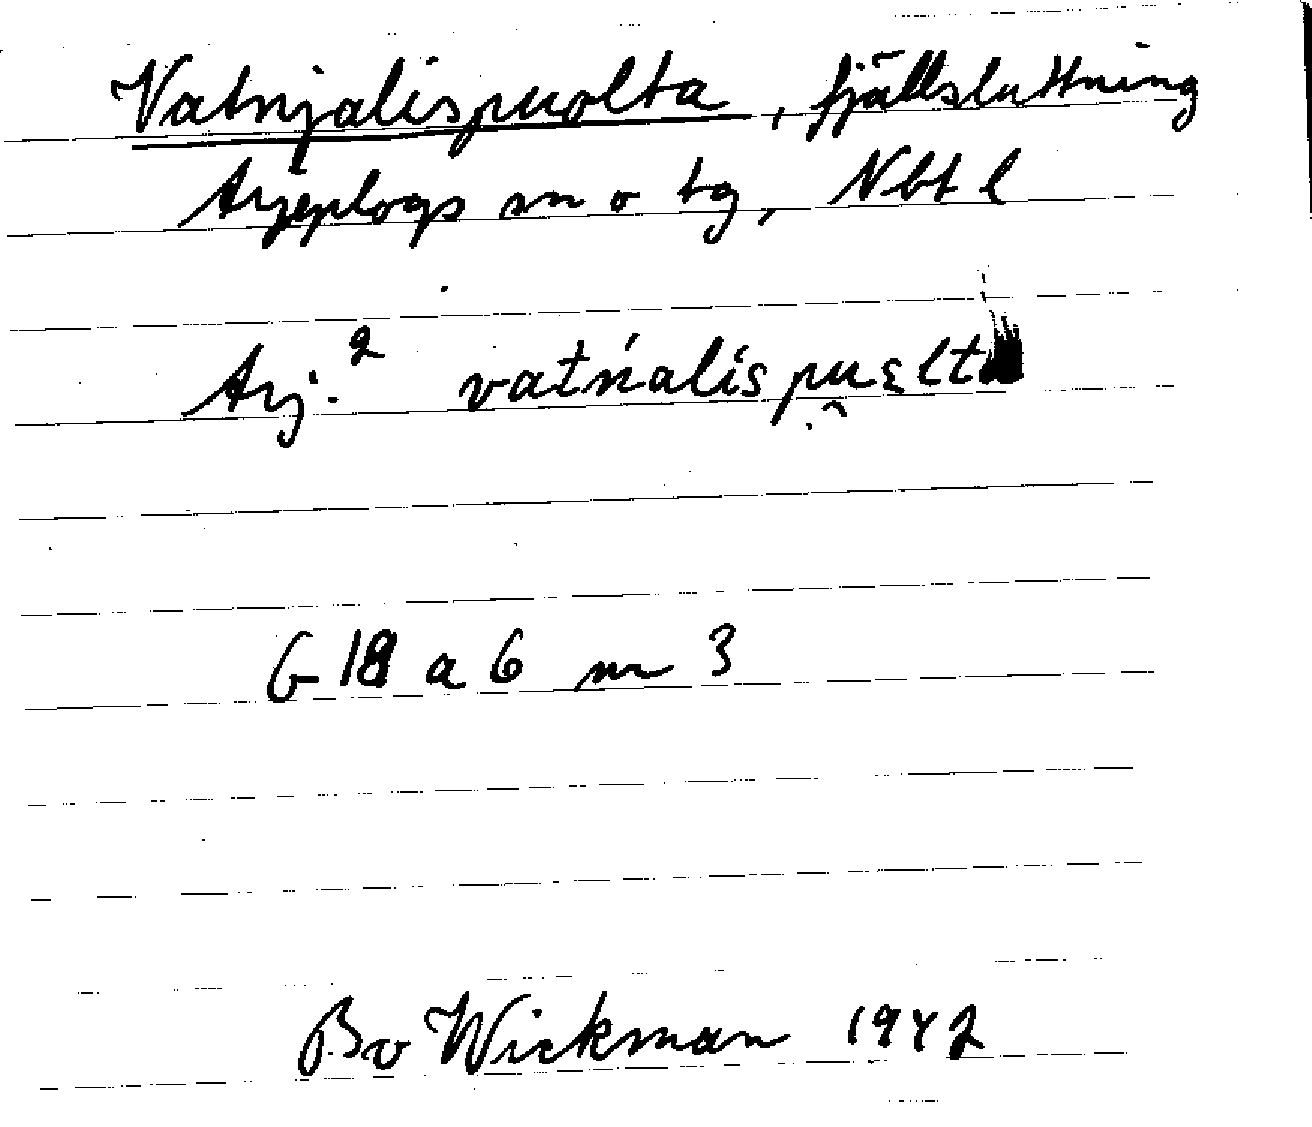 Vatnjalispuolta, fjällsluttning
Arjeplogs sn o tg, Nbt l
Arj.² vatńalis
G 18 a 6 nr 3
Bo Wickman 1942